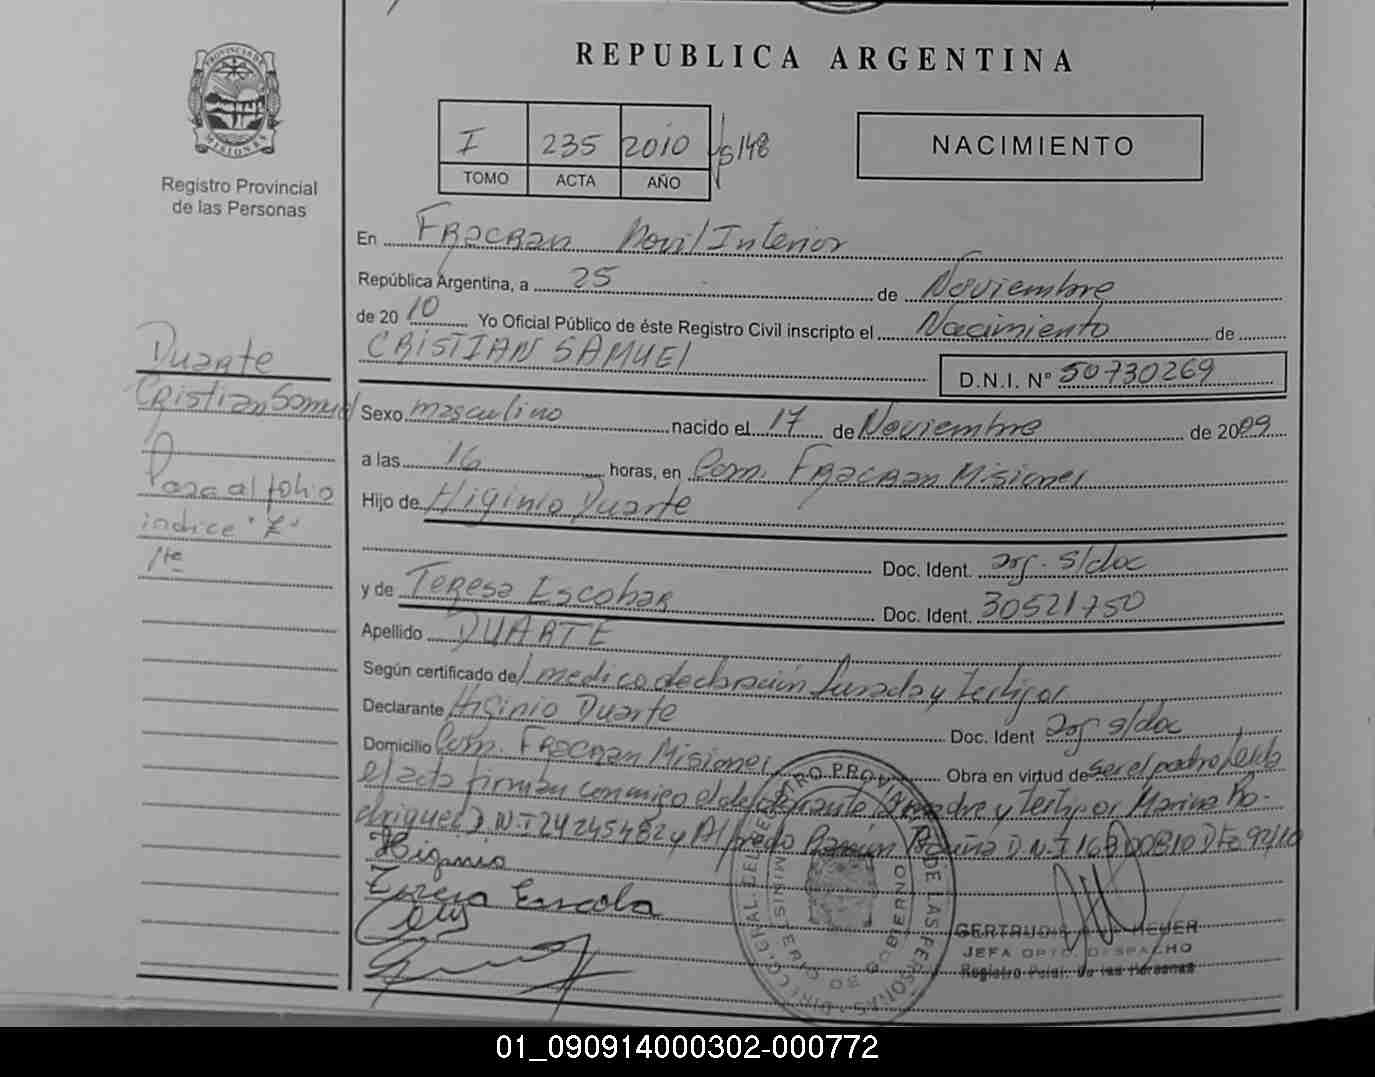 REPUBLICA ARGENTINA
PROVINCIA DE
MISIONES
Registro Provincial
de las Personas
I 235 2010 148
TOMO ACTA AÑO
NACIMIENTO
En Fracran Movil Interior
República Argentina, a 25 de Noviembre
de 2010 Yo Oficial Público de éste Registro Civil inscripto el Nacimiento de
CRISTIAN SAMUEL
D.N.I. Nº 50730269
Duarte
Cristian Samuel
Pasa al folio
indice "Z"
1te
Sexo masculino nacido el 17 de Noviembre de 2009
a las 16 horas, en Com. Fracran Misiones
Hijo de Higinio Duarte
Doc. Ident. arg. s/doc
y de Teresa Escobar
Doc. Ident. 30521750
Apellido DUARTE
Según certificado de/ medico declaración Jurada y testigos
Declarante Higinio Duarte Doc. Ident arg s/doc
Domicilio Com. Fracran Misiones Obra en virtud de ser el padre Leida
el acta firman conmigo el declarante, la madre y testigos Marina Ro-
driguez D.N.I 24245482 y Alfredo Ramón Acuña D.N.I
Higinio
Teresa Escola
REGISTRO PROVINCIAL DE LAS PERSONAS
MINISTERIO DE GOBIERNO
GERTRUDIS MEYER
JEFA DPTO. DESPACHO
Registro Pcial. de las Personas
01_090914000302-000772